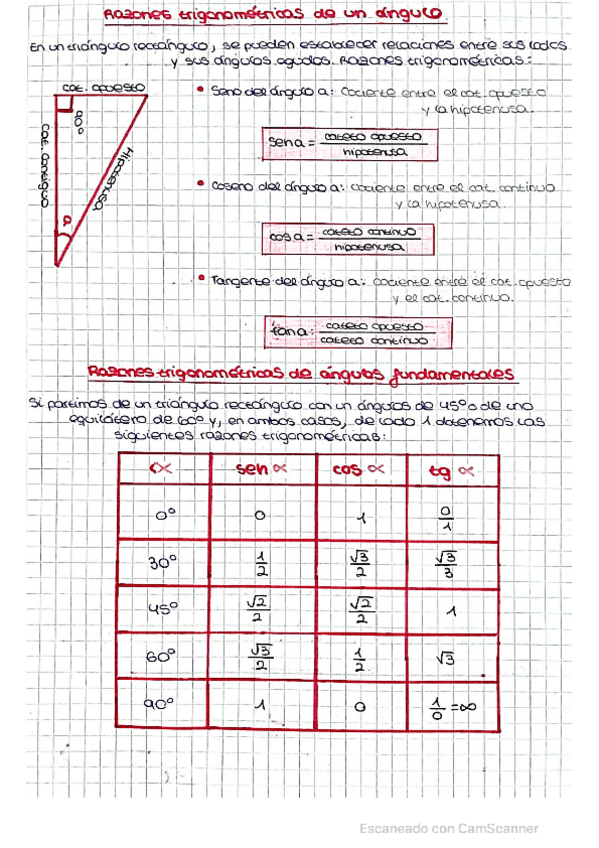 Razones trigonométricas de un ángulo
En un triángulo rectángulo, se pueden establecer relaciones entre sus lados
y sus ángulos agudos. Razones trigonométricas:
cat. opuesto
90º
cat. contiguo
Hipotenusa
a
• Seno del ángulo a: Cociente entre el cat. opuesto
y la hipotenusa.
sen a = cateto opuesto / hipotenusa
• Coseno del ángulo a: cociente entre el cat. continuo
y la hipotenusa.
cos a = cateto continuo / hipotenusa
• Tangente del ángulo a: cociente entre el cat. opuesto
y el cat. continuo.
tan a: cateto opuesto / cateto continuo
Razones trigonométricas de ángulos fundamentales
Si partimos de un triángulo rectángulo con un ángulos de 45º o de uno
equilátero de 60º y, en ambos casos, de lado 1 obtenemos las
siguientes razones trigonométricas:
α sen α cos α tg α
0º 0 1 0/1
30º 1/2 √3/2 √3/3
45º √2/2 √2/2 1
60º √3/2 1/2 √3
90º 1 0 1/0 = ∞
Escaneado con CamScanner